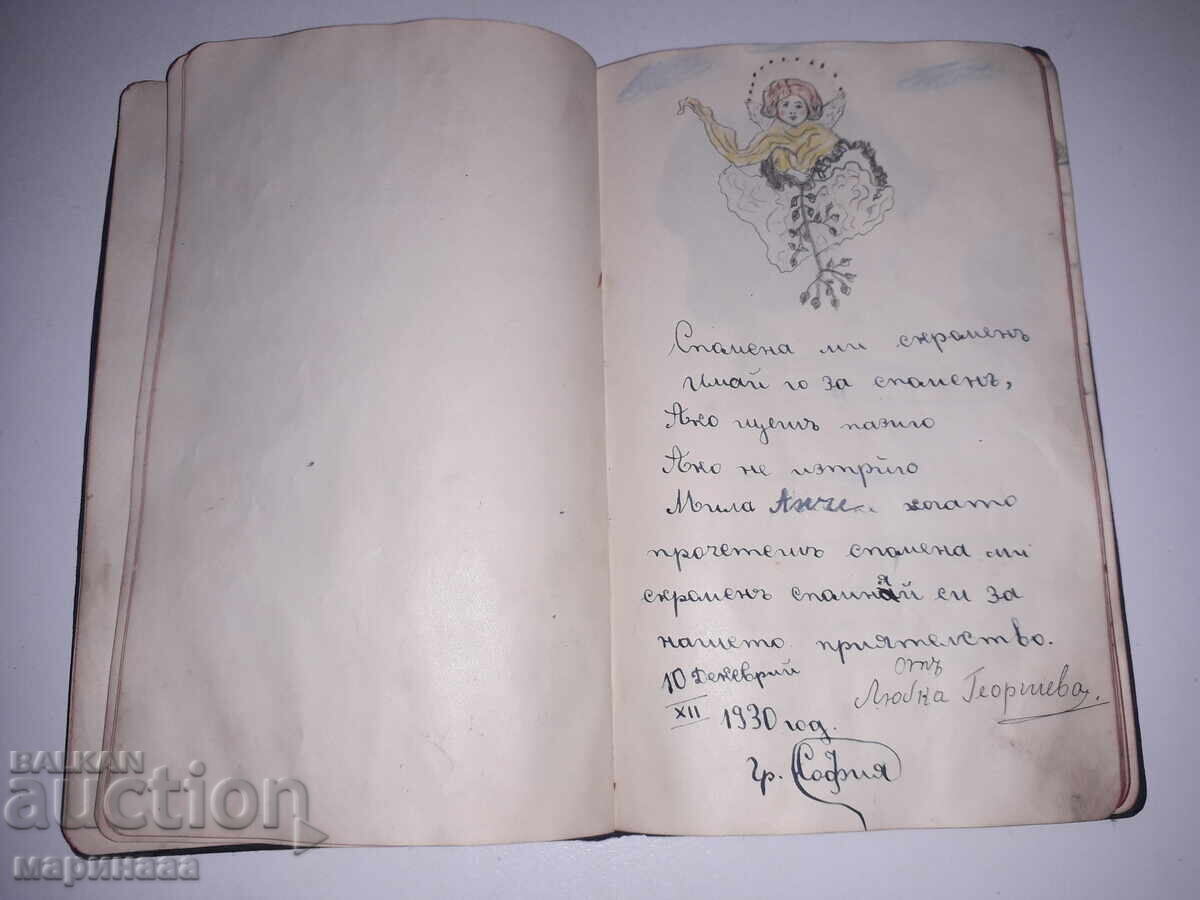 Спомена ми скроменъ
имай го за споменъ,
Ако щешъ пазиго
Ако не изтрйго
Мила Анче.. когато
прочетешъ спомена ми
скроменъ спомняй си за
нашето приятелство.
10 Декеврий
XII 1930 год.
отъ
Любка Георгиева.
гр. София
BALKAN
auction
маринааа